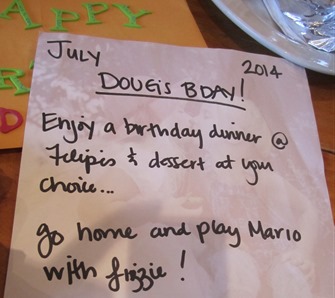 APPY
JULY 2014
DOUG'S BDAY!
Enjoy a birthday dinner @
Felipis & dessert at your
choice...
go home and play Mario
with lizzie!